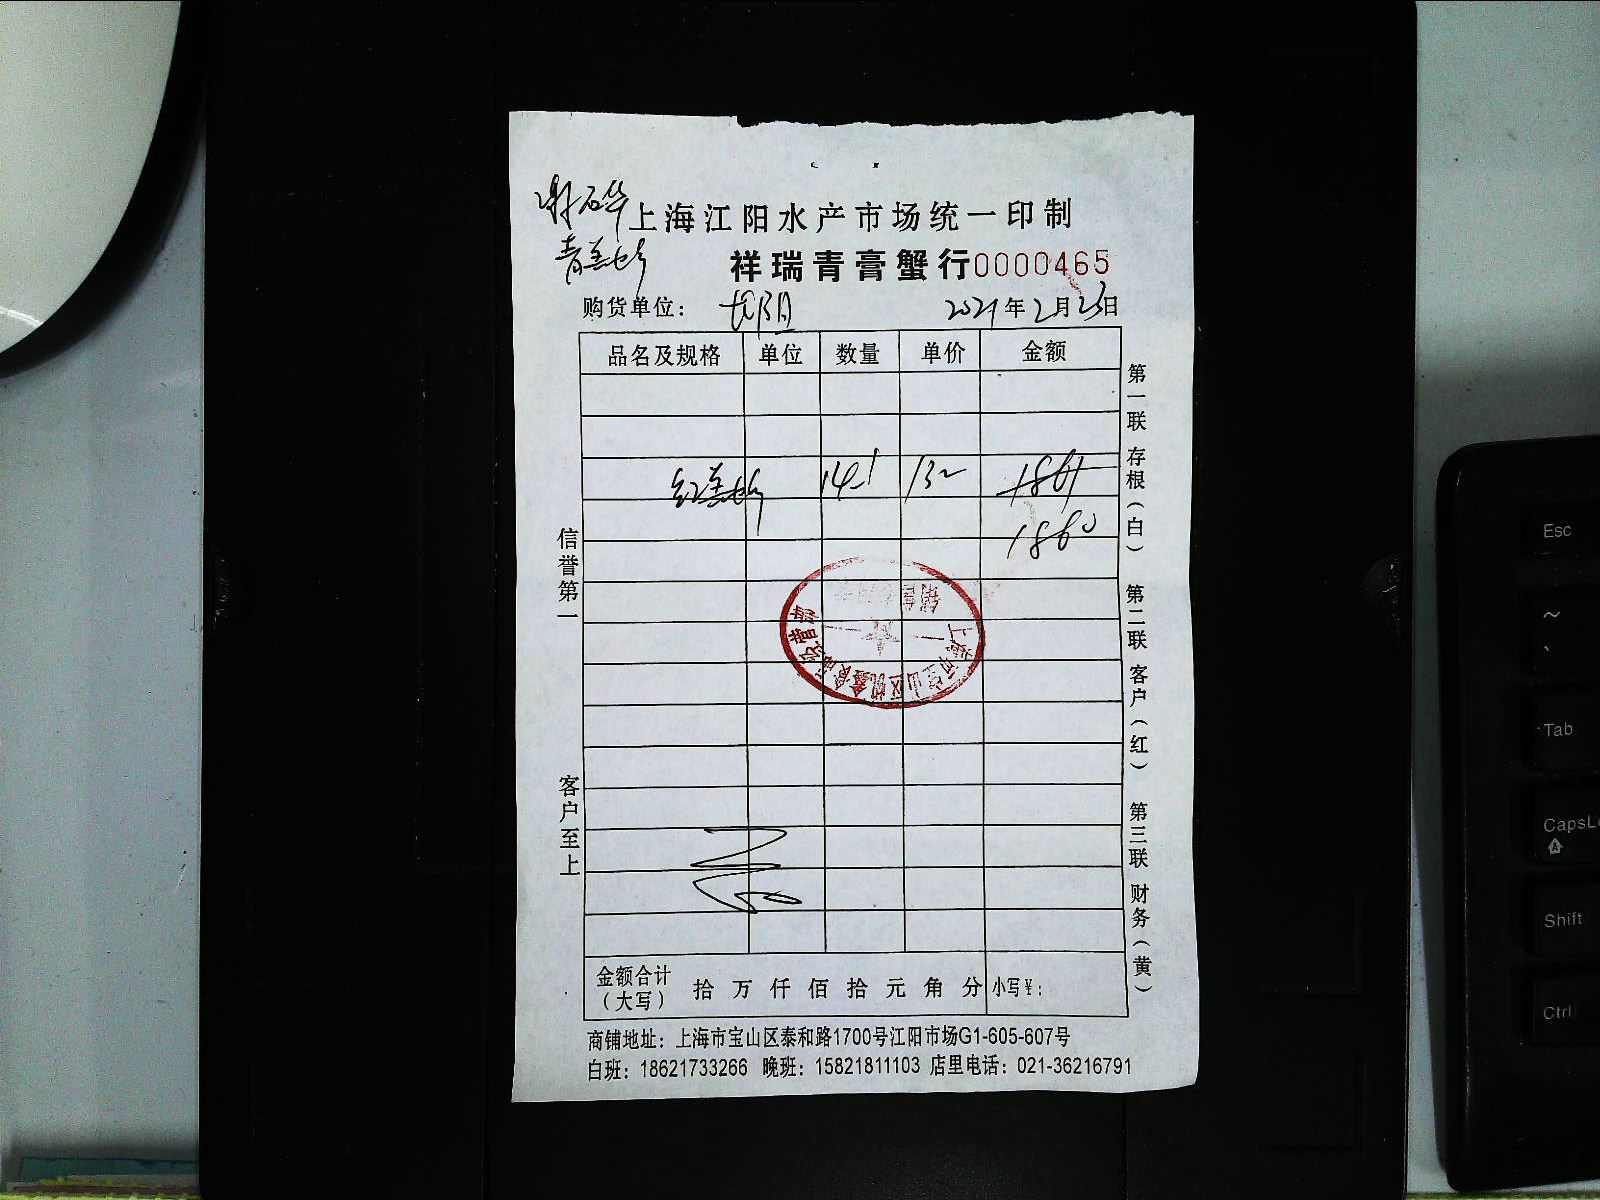 上海江阳水产市场统一印制
祥瑞青膏蟹行0000465
购货单位：
2021年2月23日
品名及规格 单位 数量 单价 金额
14.1 132 1861
1860
信誉第一
客户至上
第一联 存根（白） 第二联 客户（红） 第三联 财务（黄）
金额合计（大写） 拾 万 仟 佰 拾 元 角 分 小写¥：
商铺地址：上海市宝山区泰和路1700号江阳市场G1-605-607号
白班：18621733266 晚班：15821811103 店里电话：021-36216791
Esc
~
Tab
CapsLo
Shift
Ctrl